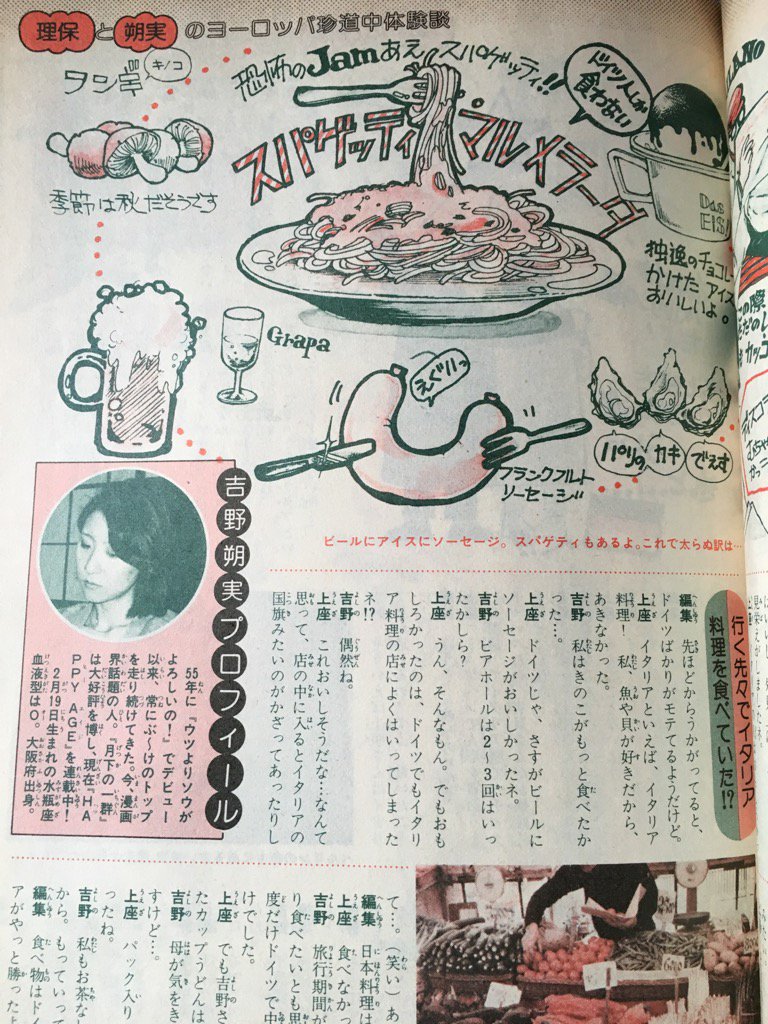 理保と朔実のヨーロッパ珍道中体験談
恐怖のJamあえスパゲッティ!!
スパゲッティ マルメラータ
キノコ
季節は秋だそうです
ドイツ人しか
食わない
Das
EIS
独逸のチョコレ
かけたアイス
おいしいよ。
Grapa
えぐりっ
フランクフルト
ソーセージ
パリの カキ でえす
ビールにアイスにソーセージ。スパゲティもあるよ。これで太らぬ訳は…
行く先々でイタリア
料理を食べていた!?
編集 先ほどからうかがってると、
ドイツばかりがモテてるようだけど。
上座 イタリアといえば、イタリア
料理! 私、魚や貝が好きだから、
あきなかった。
吉野 私はきのこがもっと食べたか
った…。
上座 ドイツじゃ、さすがビールに
ソーセージがおいしかったネ。
吉野 ビアホールは2~3回はいっ
たかしら?
上座 うん、そんなもん。でもおも
しろかったのは、ドイツでもイタリ
ア料理の店によくはいってしまった
ネ!?
吉野 偶然ね。
上座 これおいしそうだな…なんて
思って、店の中に入るとイタリアの
国旗みたいのがかざってあったりし
吉野朔実プロフィール
55年に『ウツよりソウが
よろしいの!』でデビュー
以来、常にぶ~けのトップ
を走り続けてきた。今、漫画
界話題の人。『月下の一群』
は大好評を博し、現在『HA
PPY AGE』を連載中!
2月19日生まれの水瓶座
血液型はO。大阪府出身。
て…。(笑い)
編集 日本料理は
上座 食べなかっ
吉野 旅行期間が
り食べたいとも思
度だけドイツで中
けでした。
上座 でも吉野さ
たカップうどんは
吉野 母が気をき
すけど…。
上座 パック入り
ったね。
吉野 私もお茶な
から。もっていって
編集 食べ物はド
アがやっと勝ったよ